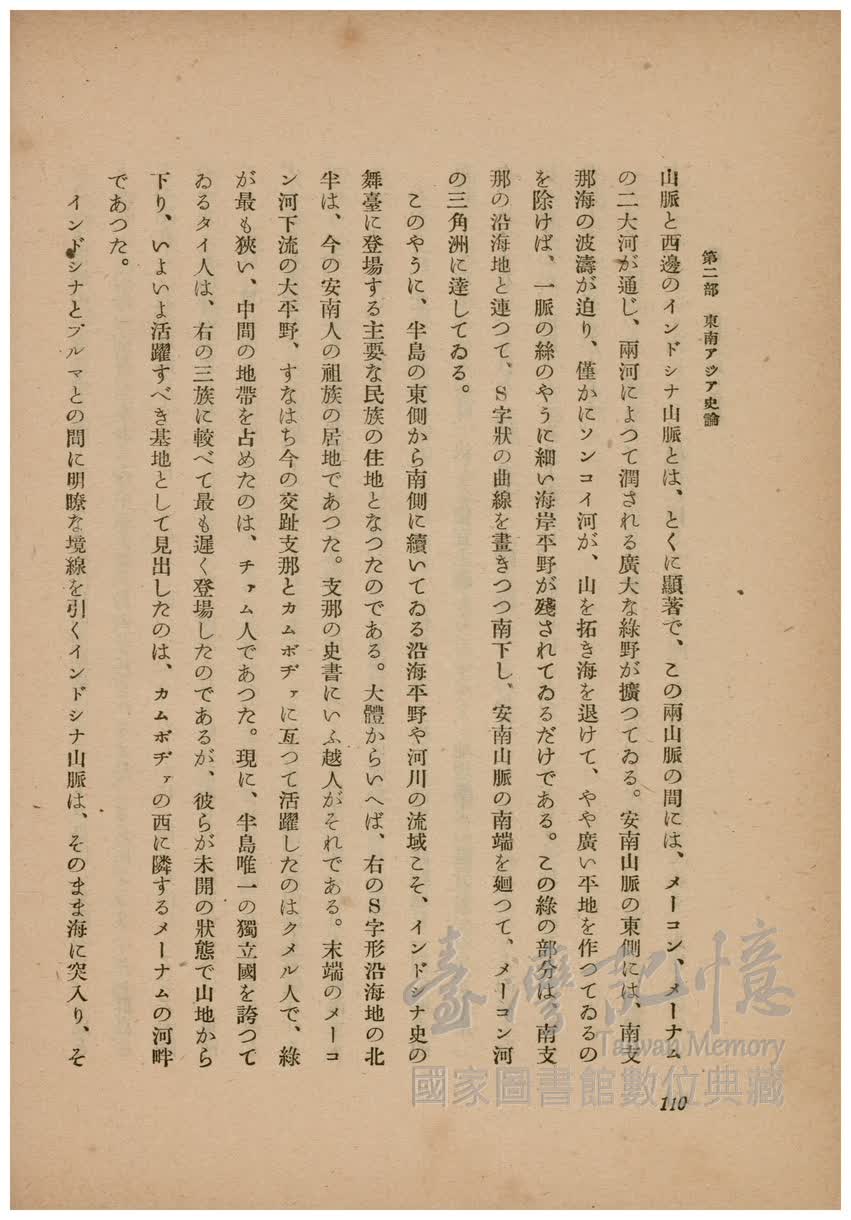 第二部　東南アジア史論
山脈と西邊のインドシナ山脈とは、とくに顯著で、この兩山脈の間には、メーコン、メーナム
の二大河が通じ、兩河によつて潤される廣大な綠野が擴つてゐる。安南山脈の東側には、南支
那海の波濤が迫り、僅かにソンコイ河が、山を拓き海を退けて、やや廣い平地を作つてゐるの
を除けば、一脈の絲のやうに細い海岸平野が殘されてゐるだけである。この綠の部分は、南支
那の沿海地と連つて、S字狀の曲線を畫きつつ南下し、安南山脈の南端を廻つて、メーコン河
の三角洲に達してゐる。
このやうに、半島の東側から南側に續いてゐる沿海平野や河川の流域こそ、インドシナ史の
舞臺に登場する主要な民族の住地となつたのである。大體からいへば、右のS字形沿海地の北
半は、今の安南人の祖族の居地であつた。支那の史書にいふ越人がそれである。末端のメーコ
ン河下流の大平野、すなはち今の交趾支那とカムボヂァに亙つて活躍したのはクメル人で、綠
が最も狹い、中間の地帶を占めたのは、チァム人であつた。現に、半島唯一の獨立國を誇つて
ゐるタイ人は、右の三族に較べて最も遲く登場したのであるが、彼らが未開の狀態で山地から
下り、いよいよ活躍すべき基地として見出したのは、カムボヂァの西に隣するメーナムの河畔
であつた。
インドシナとブルマとの間に明瞭な境線を引くインドシナ山脈は、そのまま海に突入り、そ
110
臺灣記憶
Taiwan Memory
國家圖書館數位典藏